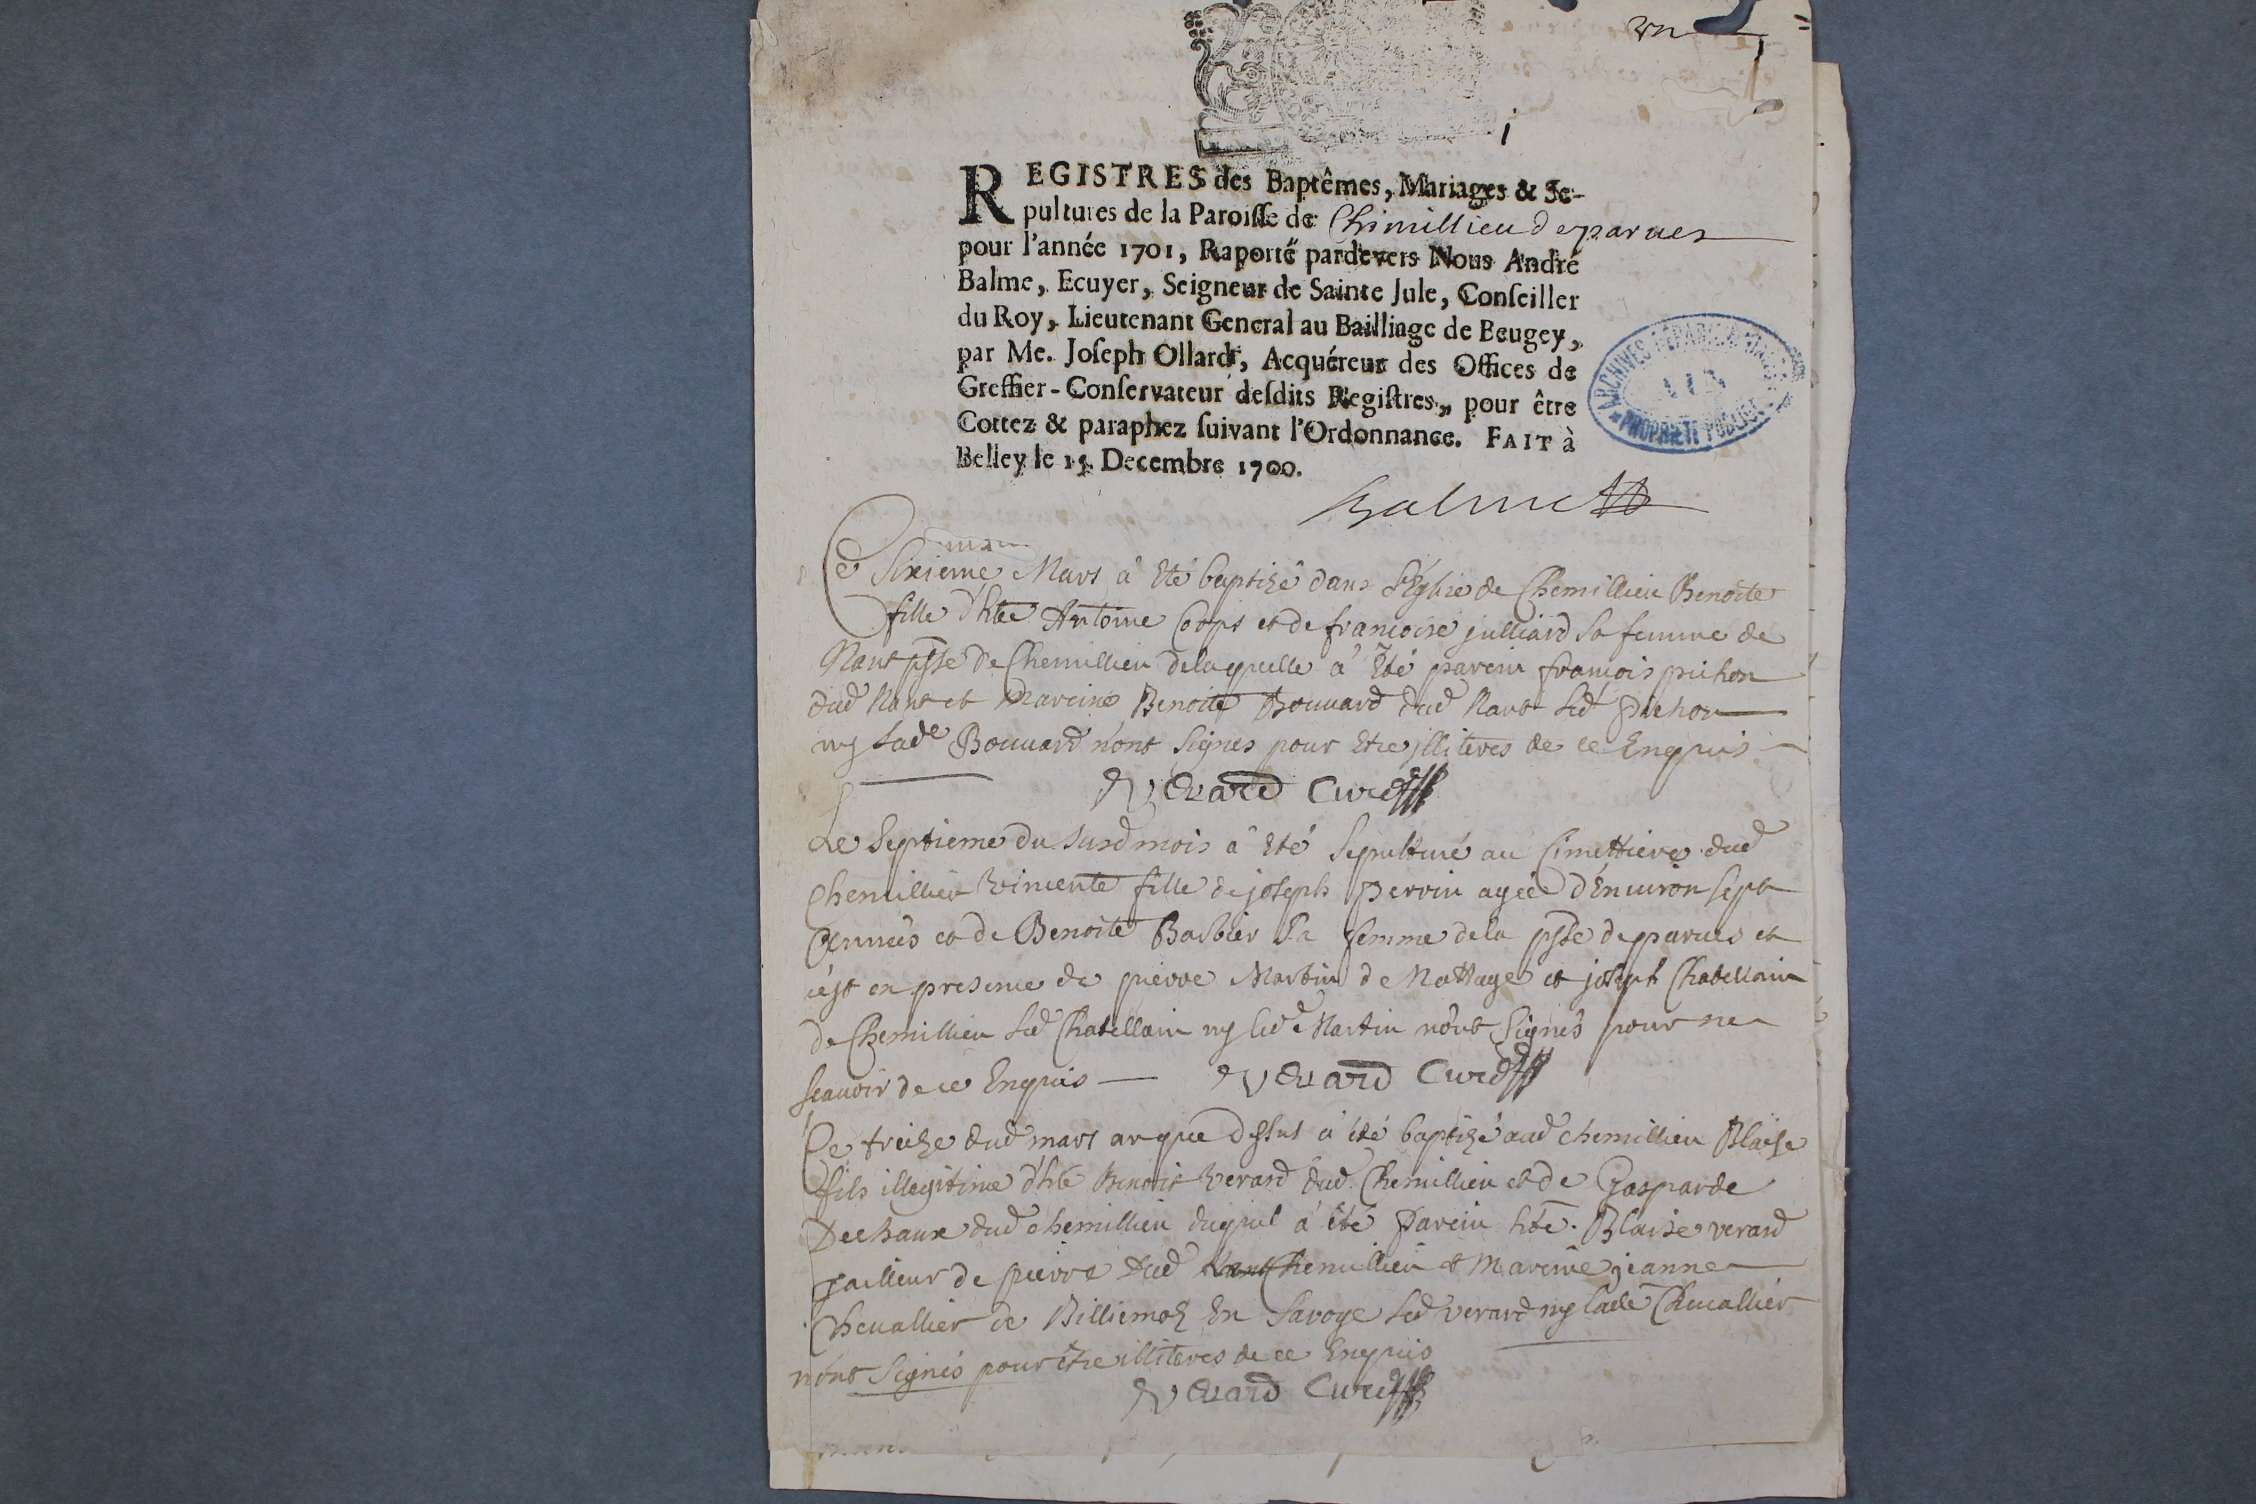 un
i
REGISTRES des Baptêmes, Mariages & Se-
pultures de la Paroisse de Chimillieu de parues
pour l'année 1701, Raporté pardevers Nous André
Balme, Ecuyer, Seigneur de Sainte Jule, Conseiller
du Roy, Lieutenant General au Bailliage de Beugey,
par Me. Joseph Ollard, Acquéreur des Offices de
Greffier-Conservateur desdits Registres, pour être
Cottez & paraphez suivant l'Ordonnance. FAIT à
Belley le 15. Decembre 1700.
ARCHIVES DÉPARTEMENTALES
AIN
* PROPRIÉTÉ PUBLIQUE *
Balme
Ce Sixieme Mars à Eté baptizé dans l'Eglise de Chemillieu Benoite
fille d'hte Antoine Corps et de francoise julliard sa femme de
Nant psse de Chemillieu de laquelle a Eté parein francois pichon
dud Nant et Mareine Benoite Bouuard dud Nant led pichon
ny lade Bouuard n'ont signes pour Etre illiteres de ce Enquis
Verard Curé
Le Septieme du susd mois à Eté sepulturé au Cimettiere dud
Chemillieu Vincente fille de joseph Perrin agée d'Enuiron sept
Années et de Benoite Barbier sa femme de la psse de parues et
c'est en presence de pierre Martin de Nattage et joseph Chatellain
de Chemillieu led Chatellain ny led Martin n'ont Signés pour ne
scauoir de ce Enquis Verard Curé
Ce treize dud mars an que dessus à été baptizé aud chemillieu Blaise
fils illegitime d'hte Benoit Verard dud Chemillieu et de Gasparde
Dechaux dud chemillieu duquel a été Parein hte. Blaise verard
Tailleur de pierre dud Chemillieu & Mareine jeanne
Cheuallier de Billiemoz En Sauoye led verard ny lade Cheuallier
n'ont Signés pour être illiteres de ce Enquis
Verard Curé